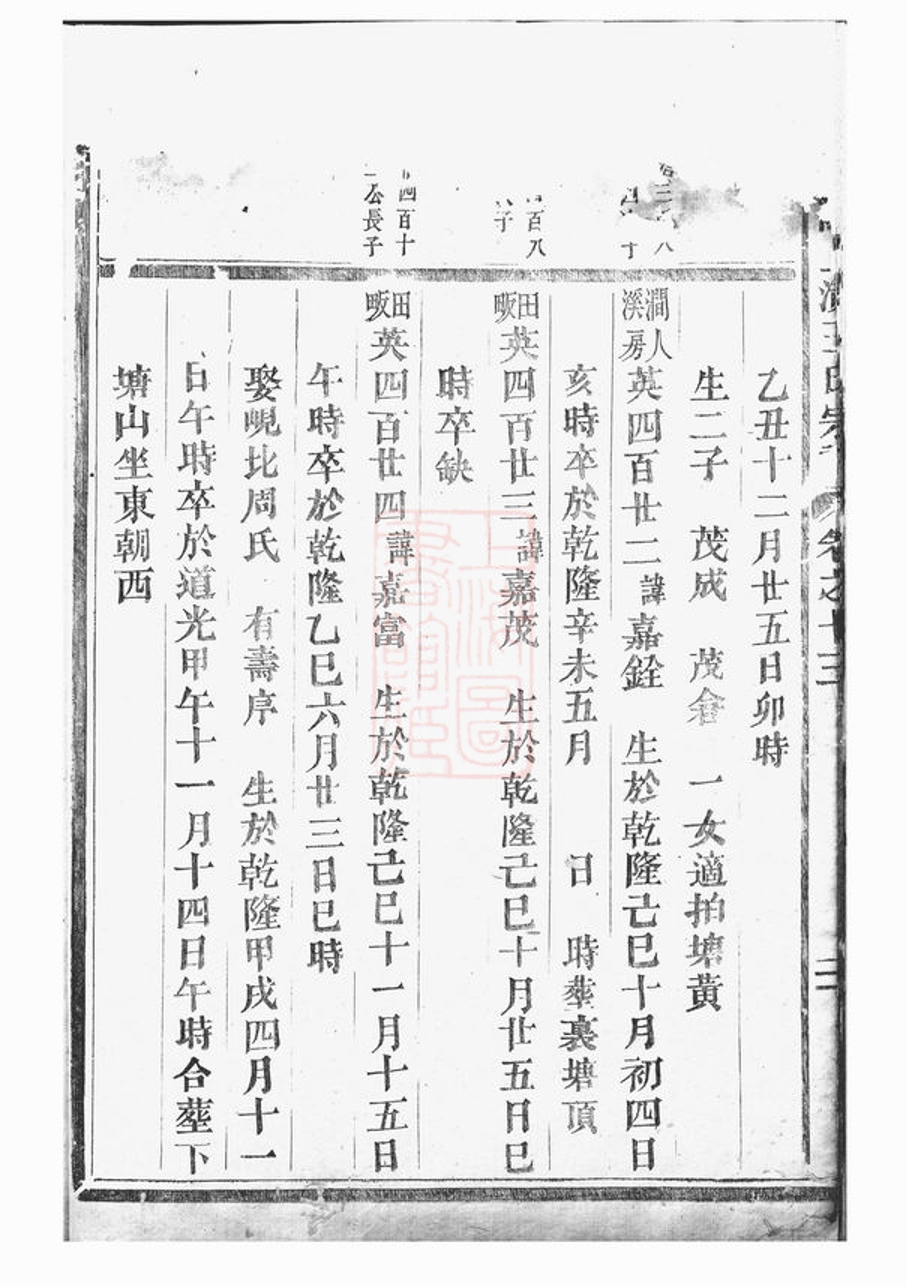 王氏宗 卷之十三 二
乙丑十二月廿五日卯時
生二子 茂成 茂倉 一女適拍塘黃
三 八
十
澗溪人房英四百廿二諱嘉銓 生於乾隆己巳十月初四日
亥時卒於乾隆辛未五月 日 時塟裏塘頂
百八
子
田畈英四百廿三諱嘉茂 生於乾隆己巳十月廿五日巳
時卒缺
四百十
公長子
田畈英四百廿四諱嘉富 生於乾隆己巳十一月十五日
午時卒於乾隆乙巳六月廿三日巳時
娶峴北周氏 有壽序 生於乾隆甲戌四月十一
日午時卒於道光甲午十一月十四日午時合塟下
塘山坐東朝西
上海圖書館藏